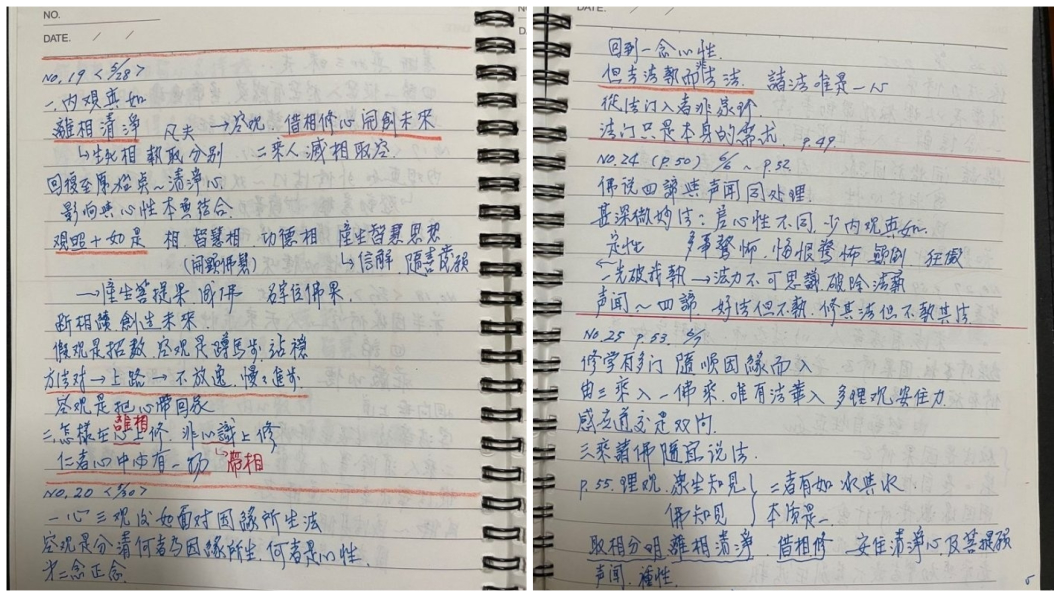 NO.
DATE. / /
No. 19 <5/28>
一、內观真如
離相清淨 凡夫 → 空观. 借相修心 開創未來
↳生死相 執取分別 二乘人滅相取空.
回復至原始点~清淨心.
影响其心性本質結合.
观照十如是 相. 智慧相 功德相 產生智慧思想
(開顯佛慧) ↳信解 隨喜菩願
→產生菩提果. 成佛 名字位佛果.
斷相續 創造未來.
假观是招数. 空观是蹲馬步. 站穩
方法对→上路→不放逸. 慢々進步.
空观是把心帶回家
離相
二. 怎樣在心上修. 非心識上修
仁者心中本有一切 帶相
NO. 20 <5/30>
一心三观 後如面对因緣所生法
空观是分清何者為因緣所生 何者是心性.
才二念正念.
DATE. / /
回到一念心性.
但去法執而非去法. 諸法唯是一心
從法门入者非家珍
法门只是本身的需求. P.49
No. 24 (P.50) 6/6 ~ P.52.
佛說四諦與声聞同处理.
甚深微妙法: 差心性不同. 少內观真如.
定性 多事驚怖. 惱恨驚怖 顛倒. 狂傲
一先破我執→法力不可思議 破除法執
声聞~四諦. 好法但不執. 修其法但不執其法.
NO. 25 P.53. 6/7
修学有多门 隨順因緣而入
由三乘入一佛乘. 唯有法華入 多理观安住力.
感应道交是双向.
三乘諸佛隨宜說法.
P.55. 理观. 眾生知見 } 二者有如 水與冰
佛知見 本质是一.
取相分明 離相清淨 借相修 安住清淨心及菩提願
声聞. 種性.
5